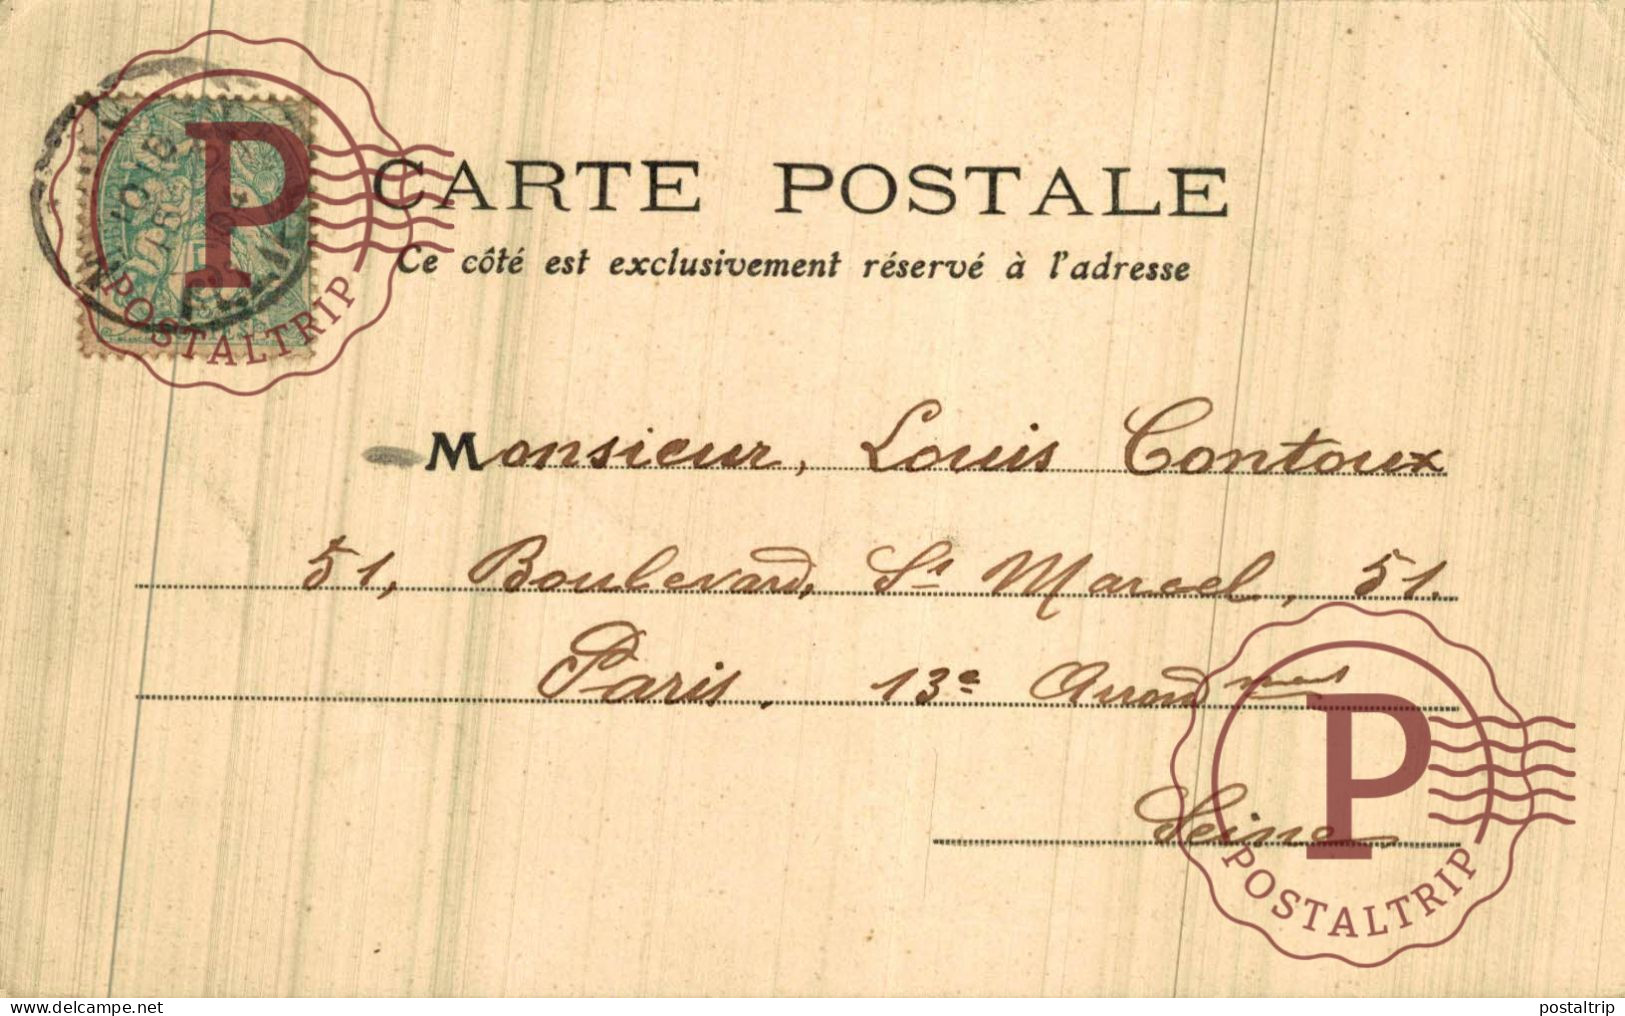 CARTE POSTALE
Ce côté est exclusivement réservé à l'adresse
POSTALTRIP
Monsieur, Louis Contoux
51, Boulevard, St Marcel, 51.
Paris, 13e Arrondment
Seine
POSTALTRIP
delcampe.net
postaltrip